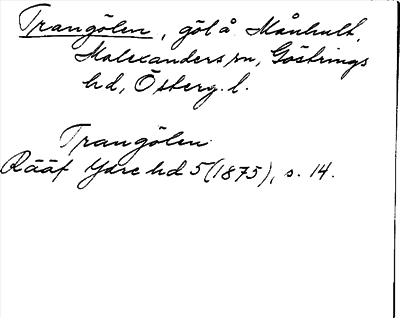 Trangölen, göl å Månhult,
Malexanders sn, Göstrings
hd, Österg. l.
Trangölen
Rääf Ydre hd 5 (1875), s. 14.